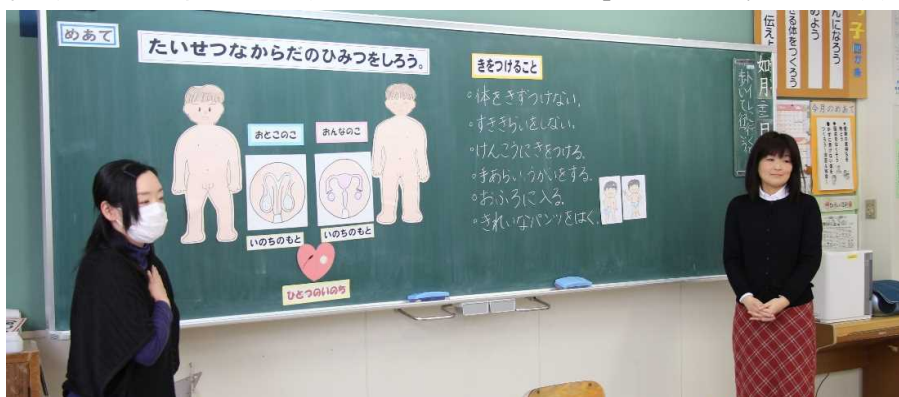 めあて
たいせつなからだのひみつをしろう。
おとこのこ
おんなのこ
いのちのもと
いのちのもと
ひとつのいのち
きをつけること
・体をきずつけない。
・すききらいをしない。
・けんこうにきをつける。
・手あらいうがいをする。
・おふろに入る。
・きれいなパンツをはく。
今月のめあて